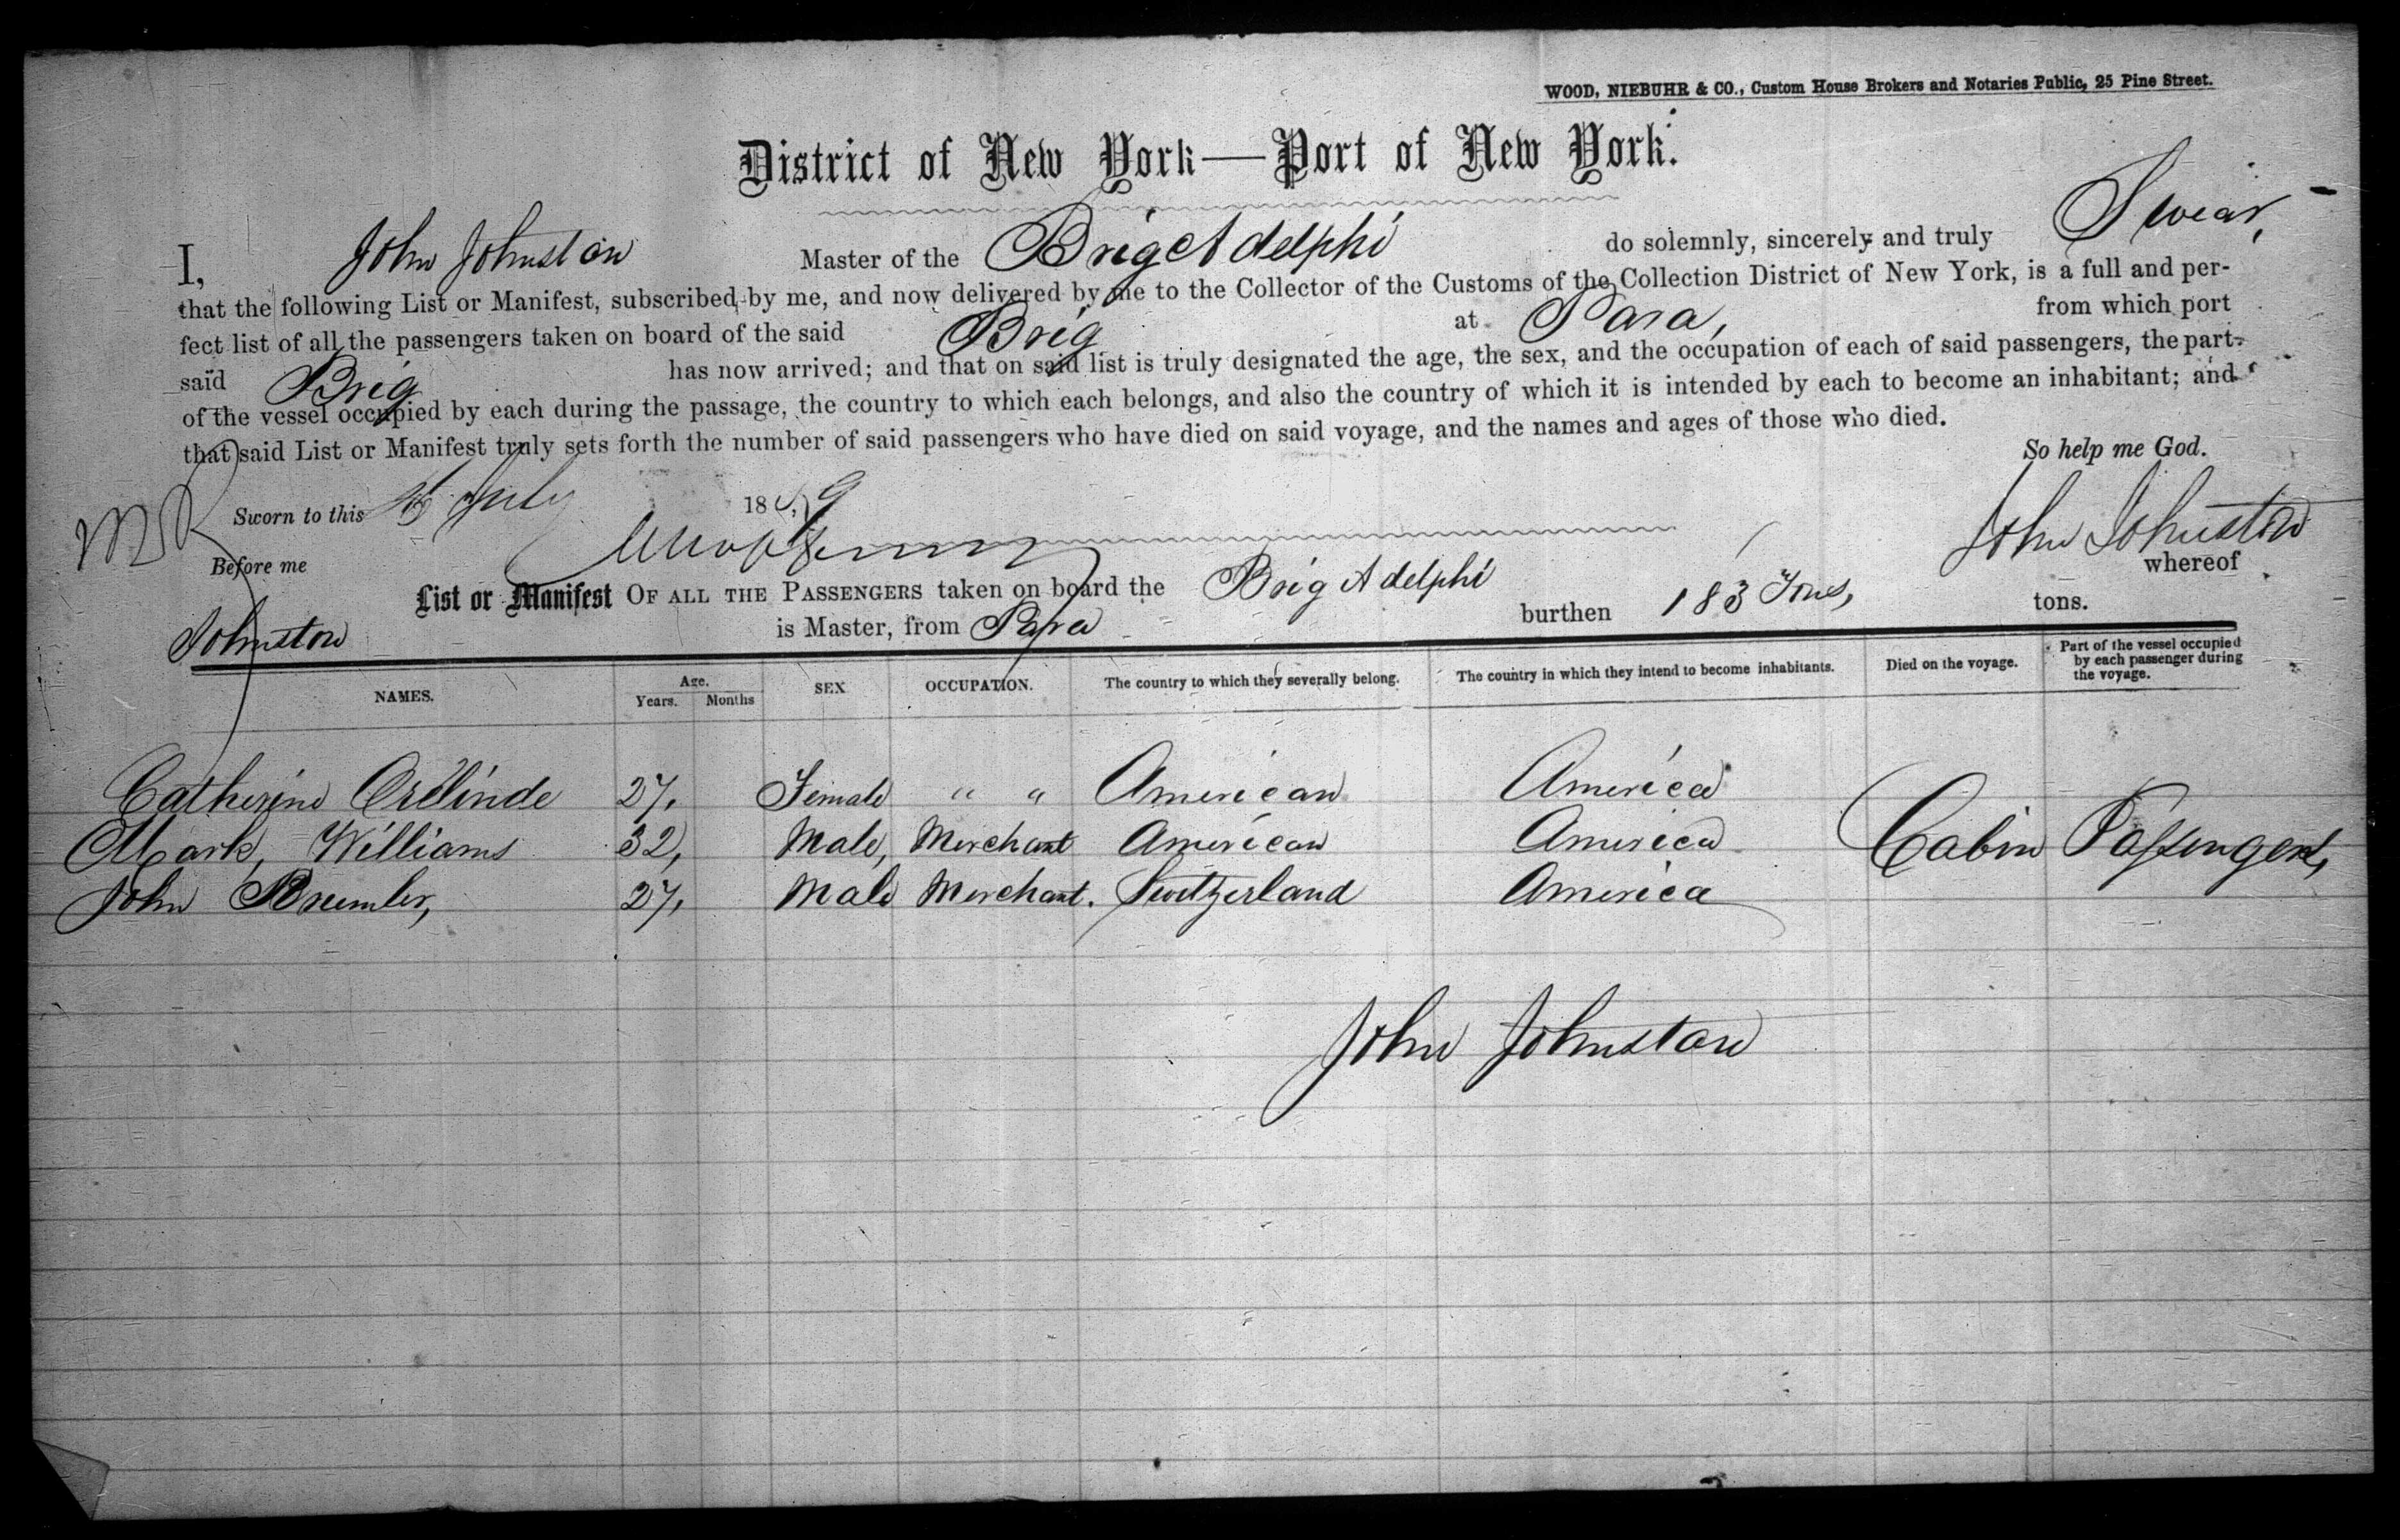 WOOD, NIEBUHR & CO., Custom House Brokers and Notaries Public, 25 Pine Street.
District of New York—Port of New York.
I, John Johnston Master of the Brig Adelphi do solemnly, sincerely and truly Swear,
that the following List or Manifest, subscribed by me, and now delivered by me to the Collector of the Customs of the Collection District of New York, is a full and per-
fect list of all the passengers taken on board of the said Brig at Para, from which port
said Brig has now arrived; and that on said list is truly designated the age, the sex, and the occupation of each of said passengers, the part
of the vessel occupied by each during the passage, the country to which each belongs, and also the country of which it is intended by each to become an inhabitant; and
that said List or Manifest truly sets forth the number of said passengers who have died on said voyage, and the names and ages of those who died.
So help me God.
Sworn to this July 1869
John Johnston
Before me
List or Manifest OF ALL THE PASSENGERS taken on board the Brig Adelphi whereof
Johnston is Master, from Para burthen 183 Tons, tons.
NAMES. Age. Years. Months SEX OCCUPATION. The country to which they severally belong. The country in which they intend to become inhabitants. Died on the voyage. Part of the vessel occupied by each passenger during the voyage.
Catherine 27, Female " " American America
Mark, Williams 32, Male, Merchant American America Cabin Passengers,
John 27, Male Merchant. Switzerland America
John Johnston